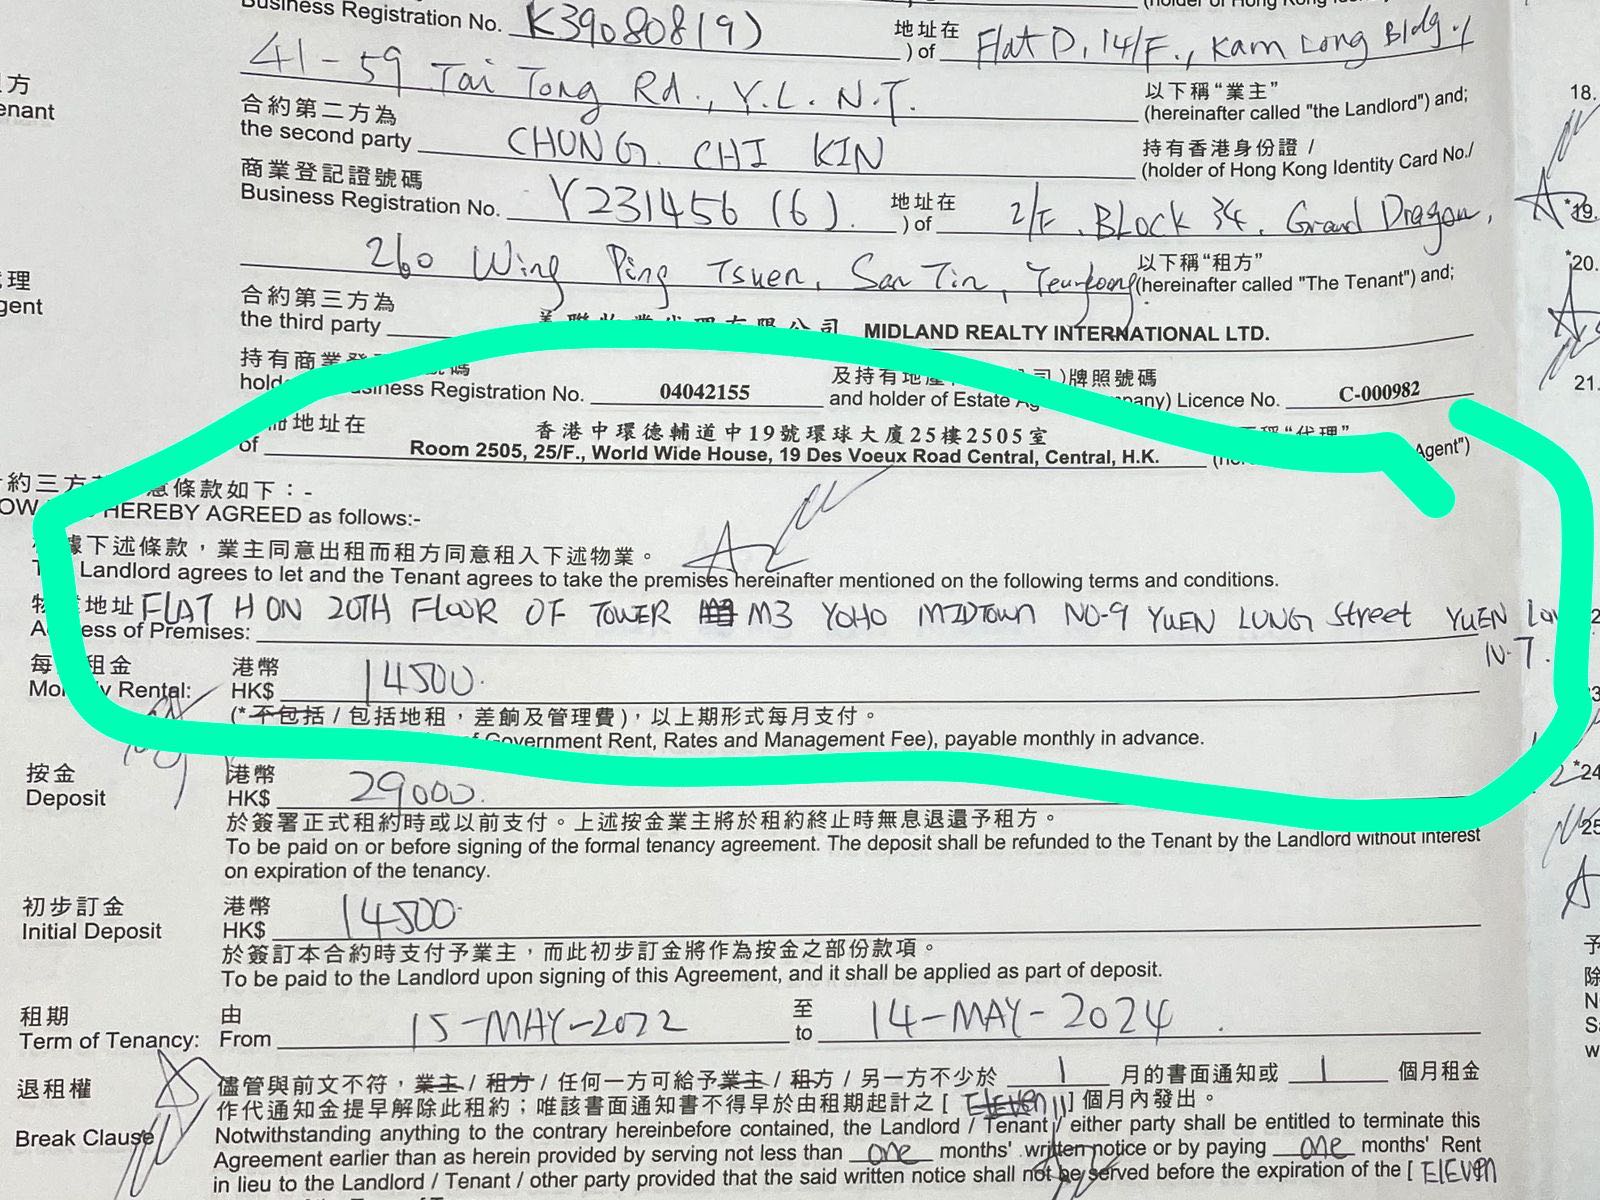 Business Registration No. K390808(9) 地址在
) of Flat D, 14/F., Kam Long Bldg.,
41-59 Tai Tong Rd., Y.L. N.T. 以下稱“業主”
(hereinafter called "the Landlord") and;
合約第二方為
the second party CHUNG CHI KIN 持有香港身份證 /
(holder of Hong Kong Identity Card No./
商業登記證號碼
Business Registration No. Y231456 (6). 地址在
) of 2/F, Block 34, Grand Dragon,
260 Wing Ping Tsuen, San Tin, 以下稱“租方”
(hereinafter called "The Tenant") and;
合約第三方為
the third party MIDLAND REALTY INTERNATIONAL LTD.
持有商業登
Business Registration No. 04042155 及持有地產 牌照號碼
and holder of Estate Licence No. C-000982
地址在 香港中環德輔道中19號環球大廈25樓2505室
of Room 2505, 25/F., World Wide House, 19 Des Voeux Road Central, Central, H.K. Agent")
條款如下：-
HEREBY AGREED as follows:-
據下述條款，業主同意出租而租方同意租入下述物業。
Landlord agrees to let and the Tenant agrees to take the premises hereinafter mentioned on the following terms and conditions.
地址 FLAT H ON 20TH FLOOR OF TOWER M3 YOHO MIDTOWN NO-9 YUEN LUNG Street YUEN
of Premises: N.T.
租金 港幣
Rental: HK$ 14500.
(*不包括 / 包括地租，差餉及管理費)，以上期形式每月支付。
Government Rent, Rates and Management Fee), payable monthly in advance.
按金 港幣
Deposit HK$ 29000.
於簽署正式租約時或以前支付。上述按金業主將於租約終止時無息退還予租方。
To be paid on or before signing of the formal tenancy agreement. The deposit shall be refunded to the Tenant by the Landlord without interest
on expiration of the tenancy.
初步訂金 港幣
Initial Deposit HK$ 14500.
於簽訂本合約時支付予業主，而此初步訂金將作為按金之部份款項。
To be paid to the Landlord upon signing of this Agreement, and it shall be applied as part of deposit.
租期 由 至
Term of Tenancy: From 15-MAY-2022 to 14-MAY-2024.
退租權 儘管與前文不符，業主 / 租方 / 任何一方可給予業主 / 租方 / 另一方不少於 1 月的書面通知或 1 個月租金
作代通知金提早解除此租約；唯該書面通知書不得早於由租期起計之 [ ELEVEN ] 個月內發出。
Break Clause Notwithstanding anything to the contrary hereinbefore contained, the Landlord / Tenant / either party shall be entitled to terminate this
Agreement earlier than as herein provided by serving not less than one months' written notice or by paying one months' Rent
in lieu to the Landlord / Tenant / other party provided that the said written notice shall not be served before the expiration of the [ ELEVEN
18.
*19.
*20.
21.
*24
25